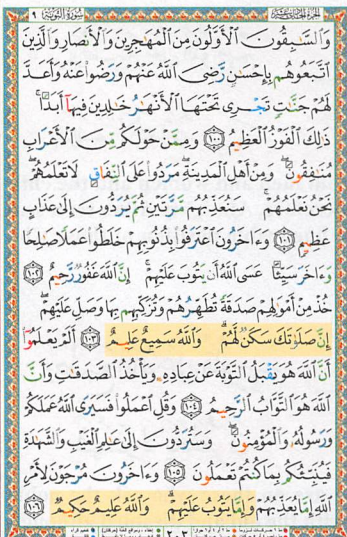 الجزء الحادي عشر سورة التوبة ٩
وَالسَّٰبِقُونَ الْأَوَّلُونَ مِنَ الْمُهَٰجِرِينَ وَالْأَنصَارِ وَالَّذِينَ
اتَّبَعُوهُم بِإِحْسَٰنٍ رَّضِيَ اللَّهُ عَنْهُمْ وَرَضُوا عَنْهُ وَأَعَدَّ
لَهُمْ جَنَّٰتٍ تَجْرِي تَحْتَهَا الْأَنْهَٰرُ خَٰلِدِينَ فِيهَا أَبَدًا ۚ
ذَٰلِكَ الْفَوْزُ الْعَظِيمُ ١٠٠ وَمِمَّنْ حَوْلَكُم مِّنَ الْأَعْرَابِ
مُنَٰفِقُونَ ۖ وَمِنْ أَهْلِ الْمَدِينَةِ ۖ مَرَدُوا عَلَى النِّفَاقِ لَا تَعْلَمُهُمْ ۖ
نَحْنُ نَعْلَمُهُمْ ۚ سَنُعَذِّبُهُم مَّرَّتَيْنِ ثُمَّ يُرَدُّونَ إِلَىٰ عَذَابٍ
عَظِيمٍ ١٠١ وَءَاخَرُونَ اعْتَرَفُوا بِذُنُوبِهِمْ خَلَطُوا عَمَلًا صَٰلِحًا
وَءَاخَرَ سَيِّئًا عَسَى اللَّهُ أَن يَتُوبَ عَلَيْهِمْ ۚ إِنَّ اللَّهَ غَفُورٌ رَّحِيمٌ ١٠٢
خُذْ مِنْ أَمْوَٰلِهِمْ صَدَقَةً تُطَهِّرُهُمْ وَتُزَكِّيهِم بِهَا وَصَلِّ عَلَيْهِمْ ۖ
إِنَّ صَلَوٰتَكَ سَكَنٌ لَّهُمْ ۗ وَاللَّهُ سَمِيعٌ عَلِيمٌ ١٠٣ أَلَمْ يَعْلَمُوا
أَنَّ اللَّهَ هُوَ يَقْبَلُ التَّوْبَةَ عَنْ عِبَادِهِ وَيَأْخُذُ الصَّدَقَٰتِ وَأَنَّ
اللَّهَ هُوَ التَّوَّابُ الرَّحِيمُ ١٠٤ وَقُلِ اعْمَلُوا فَسَيَرَى اللَّهُ عَمَلَكُمْ
وَرَسُولُهُ وَالْمُؤْمِنُونَ ۖ وَسَتُرَدُّونَ إِلَىٰ عَٰلِمِ الْغَيْبِ وَالشَّهَٰدَةِ
فَيُنَبِّئُكُم بِمَا كُنتُمْ تَعْمَلُونَ ١٠٥ وَءَاخَرُونَ مُرْجَوْنَ لِأَمْرِ
اللَّهِ إِمَّا يُعَذِّبُهُمْ وَإِمَّا يَتُوبُ عَلَيْهِمْ ۗ وَاللَّهُ عَلِيمٌ حَكِيمٌ ١٠٦
٢٠٣